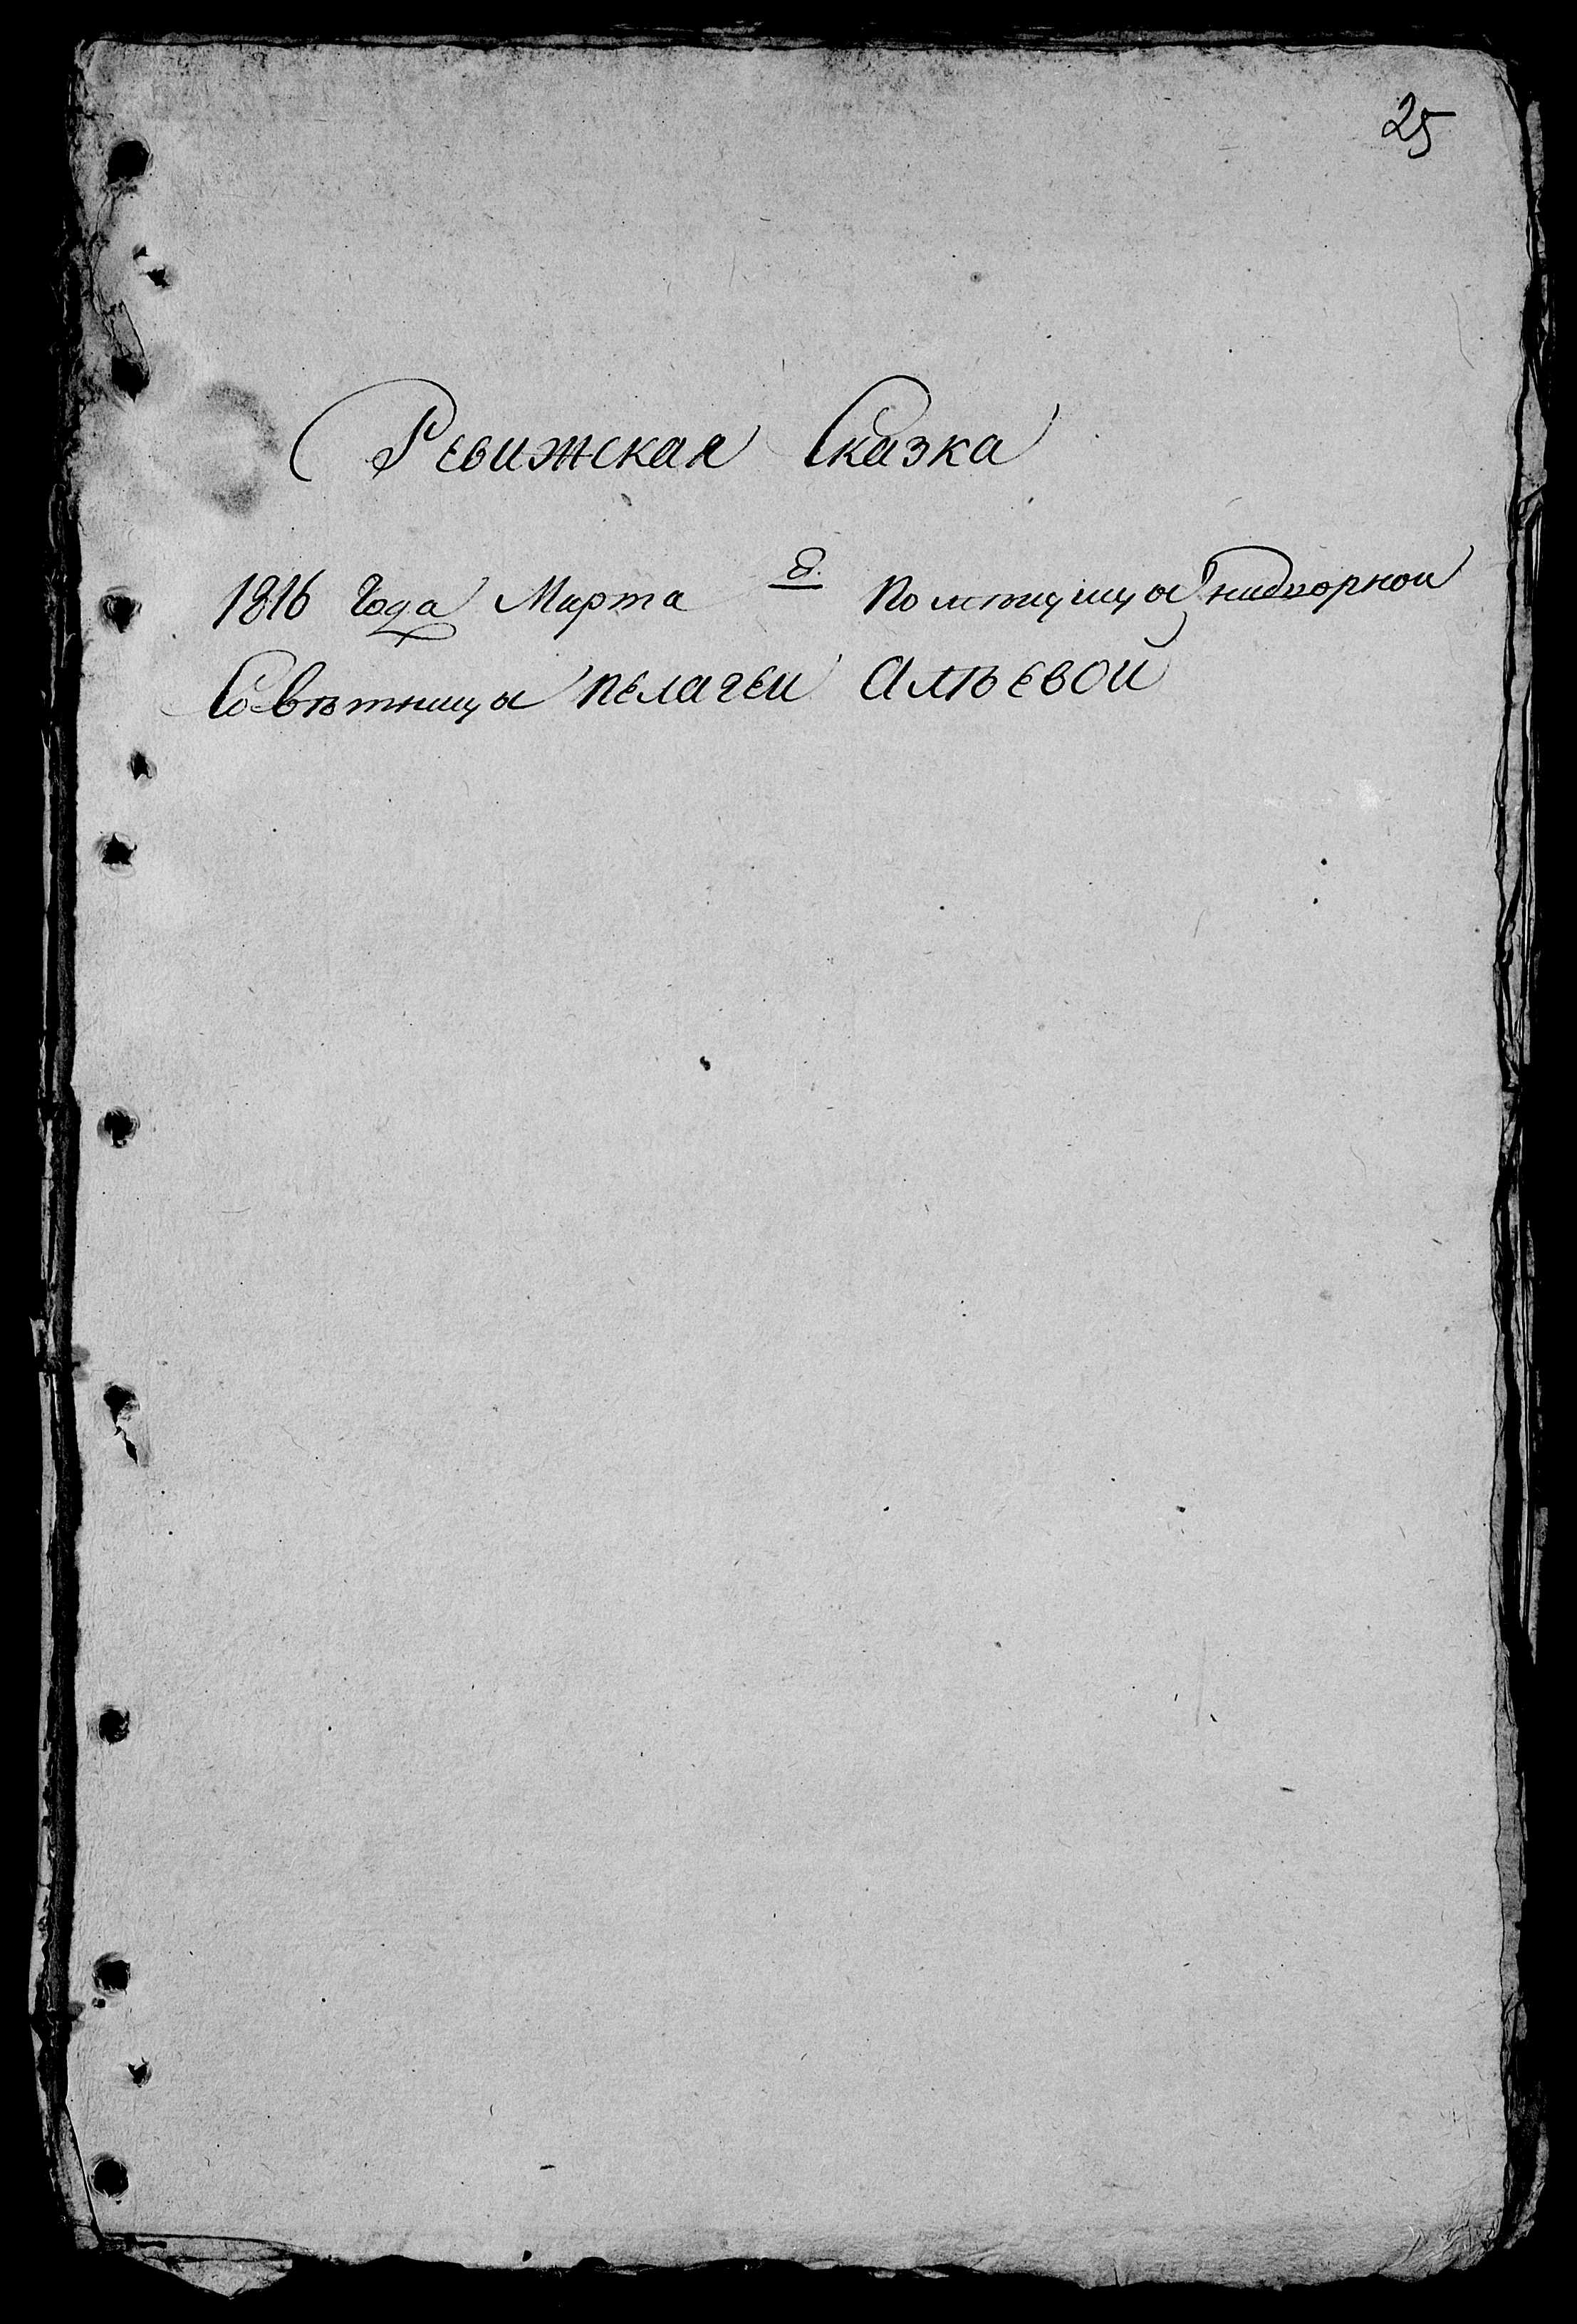 25
Ревижская Сказка
1816 Года Марта 8. Помещицы надворной
Советницы пелагеи